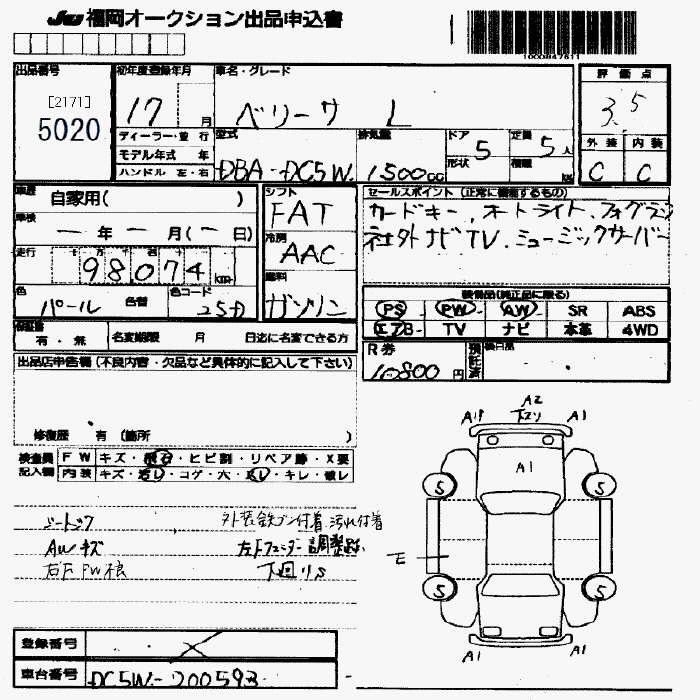 JU 福岡オークション出品申込書
1000847611
出品番号 初年度登録年月 車名・グレード 評価点
[2171]
5020
17 月 ベリーサ L 3.5
ディーラー・並行 型式 排気量 ドア 5 定員 5 人 外装 内装
モデル年式 年 形状 積載 kg
ハンドル 左・右 DBA-DC5W 1500cc C C
車歴 自家用( ) シフト FAT セールスポイント (正常に機能するもの)
車検 ー年ー月(ー日) 冷房 AAC カードキー、オートライト、フォグランプ
社外ナビTV、ミュージックサーバー
走行 十万千百十
98074 km 燃料 ガソリン
色 パール 色替 色コード 25D 装備品(純正品に限る)
PS PW AW SR ABS
保証書 有・無 名変期限 月 日迄に名変できる方 エアB TV ナビ 本革 4WD
R券 10800円 預託済 後日品
出品店申告欄 (不良内容・欠品など具体的に記入して下さい)
修復歴 有 (箇所 )
検査員 FW キズ・飛石・ヒビ割・リペア跡・X要
記入欄 内装 キズ・汚レ・コゲ・穴・スレ・キレ・破レ
シートスック 外装鉄プン付着 汚れ付着
AWキズ 左Fフェンダー調整跡
右F FW根 下廻りS
A2
A1P 下スリ A1
A1
S S
E
S S
A1 A1
登録番号 ×
車台番号 DC5W-200593